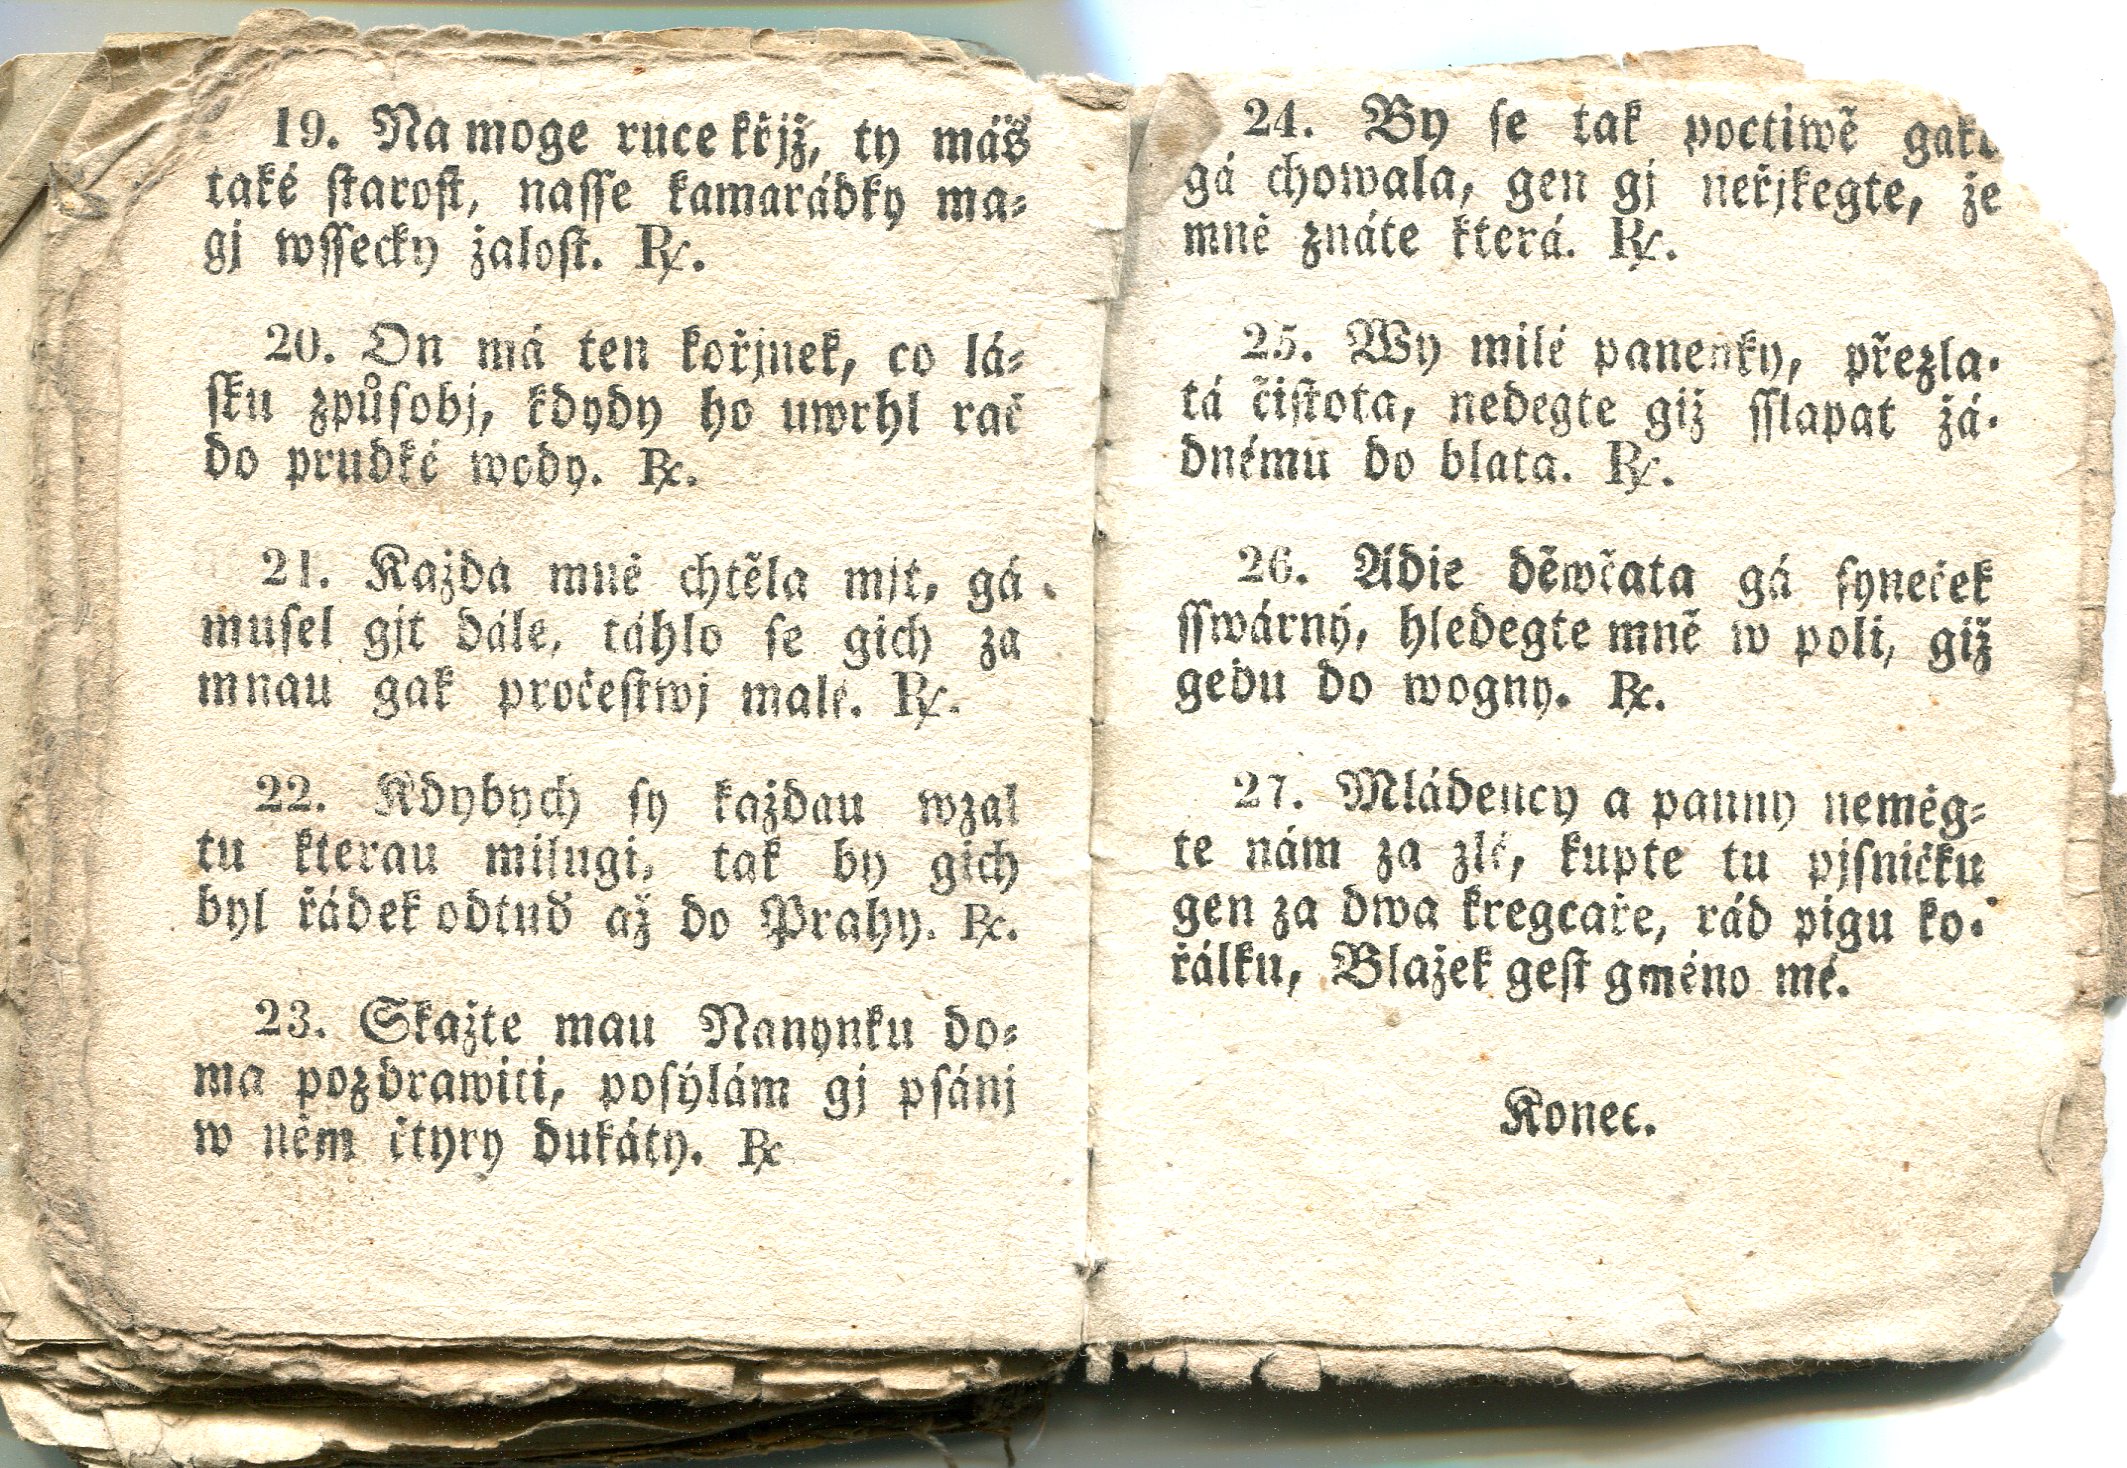 19. Na moge ruce křjž, ty máš
také starost, nasse kamarádky ma-
gj wssecky žalost. ℞.
20. On má ten kořjnek, co lá-
sku způsobj, kdydy ho uwrhl rač
do prudké wody. ℞.
21. Každá mně chtěla mjt, gá
musel gjt dále, táhlo se gich za
mnau gak pročestwj malé. ℞.
22. Kdybych sy každau wzal
tu kterau milugi, tak by gich
byl řádek odtud až do Prahy. ℞.
23. Skažte mau Nanynku do-
ma pozdrawiti, posýlám gj psánj
w něm čtyry dukáty. ℞
24. By se tak poctiwě gako
gá chowala, gen gj neřjkegte, že
mně znáte která. ℞.
25. Wy milé panenky, přezla-
tá čistota, nedegte giž sslapat žá-
dnému do blata. ℞.
26. Adie děwčata gá syneček
sswárný, hledegte mně w poli, giž
gedu do wogny. ℞.
27. Mládency a panny neměg-
te nám za zlé, kupte tu pjsničku
gen za dwa kregcaře, rád pigu ko-
řálku, Blažek gest gméno mé.
Konec.